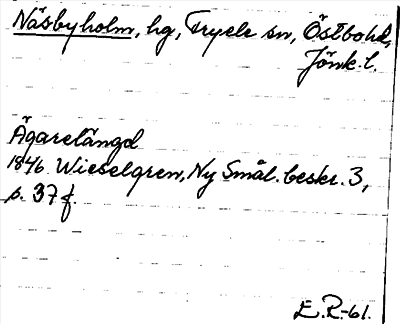 Näsbyholm, hg, Fryele sn, Östbohd,
Jönk. l.
Ägarelängd
1846 Wieselgren, Ny Smål. beskr. 3,
s. 37 f.
E.R-61.